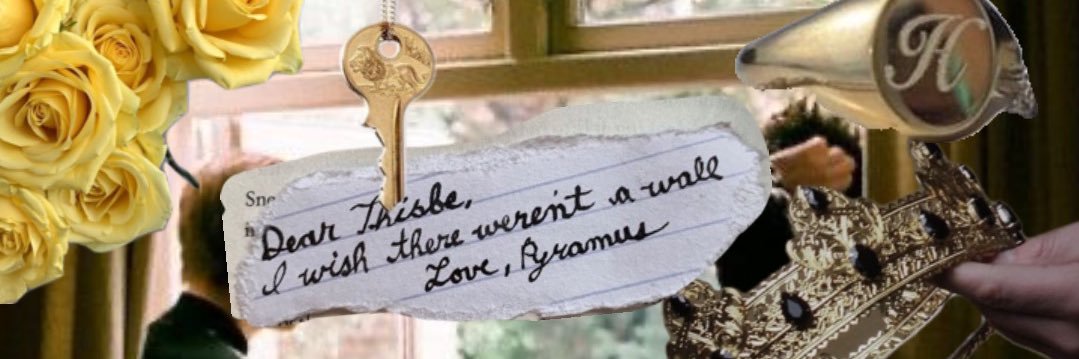 H
Sne
Dear Thisbe,
I wish there weren't a wall
Love, Pyramus